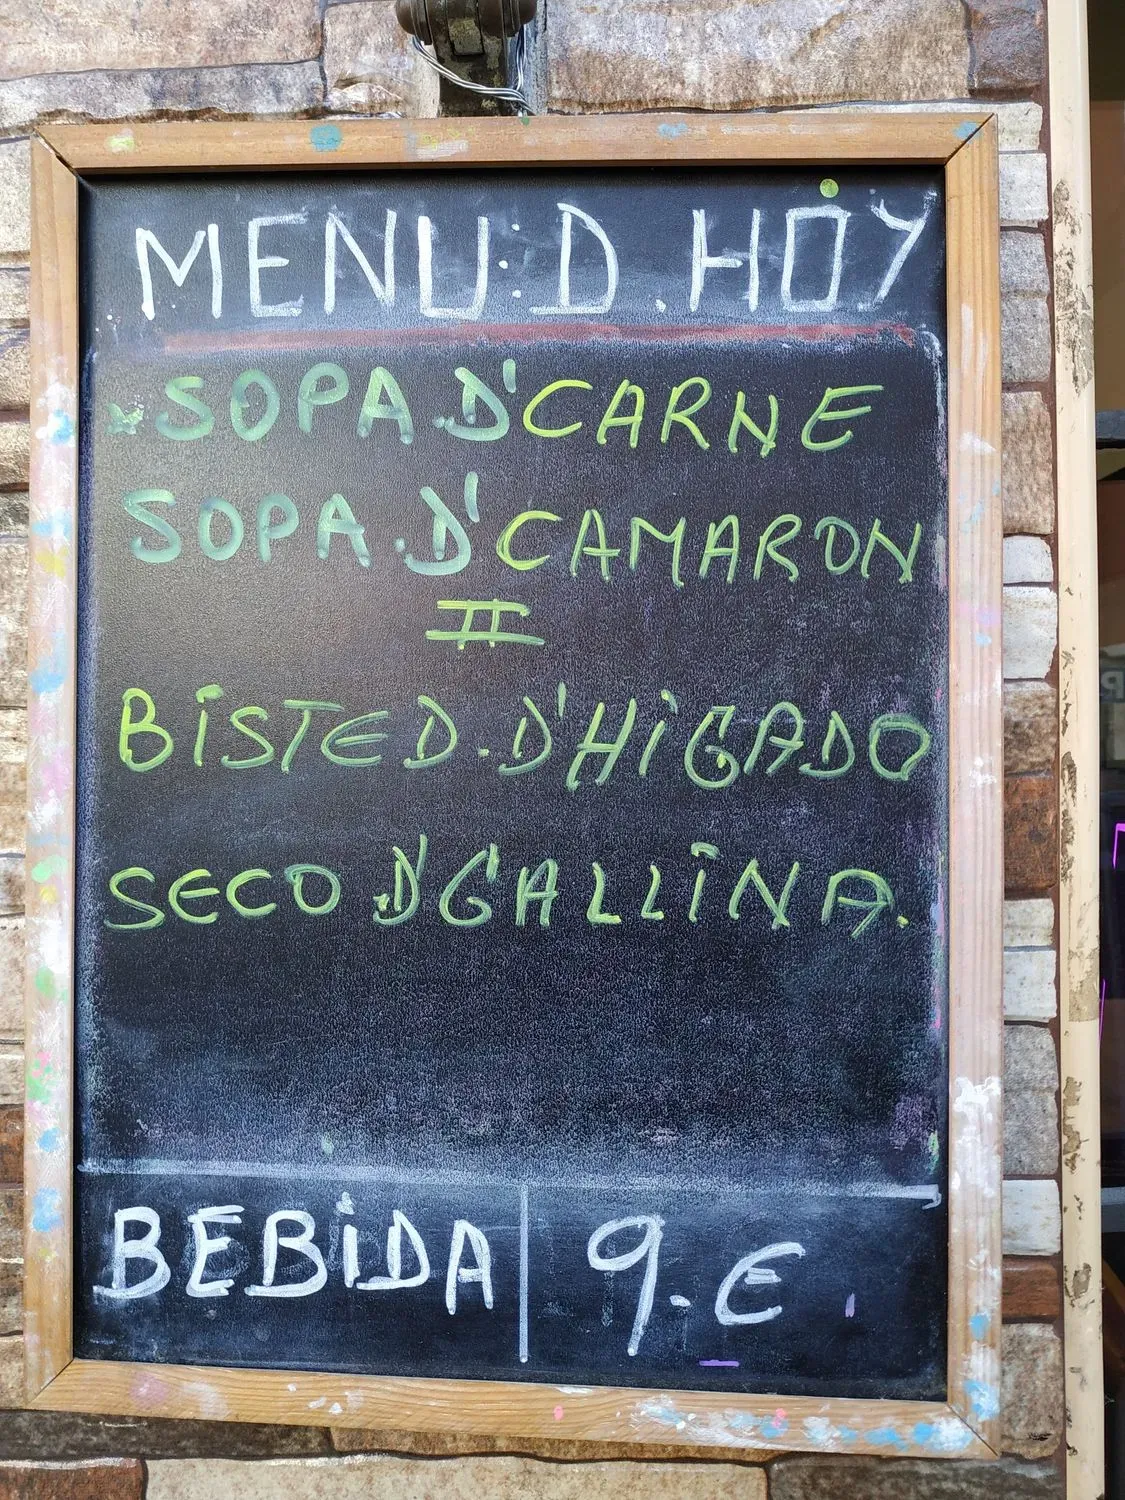 MENU:D.HOY
SOPA D'CARNE
SOPA.D'CAMARON
II
BISTED.D'HIGADO
SECO D'GALLINA.
BEBIDA | 9.€